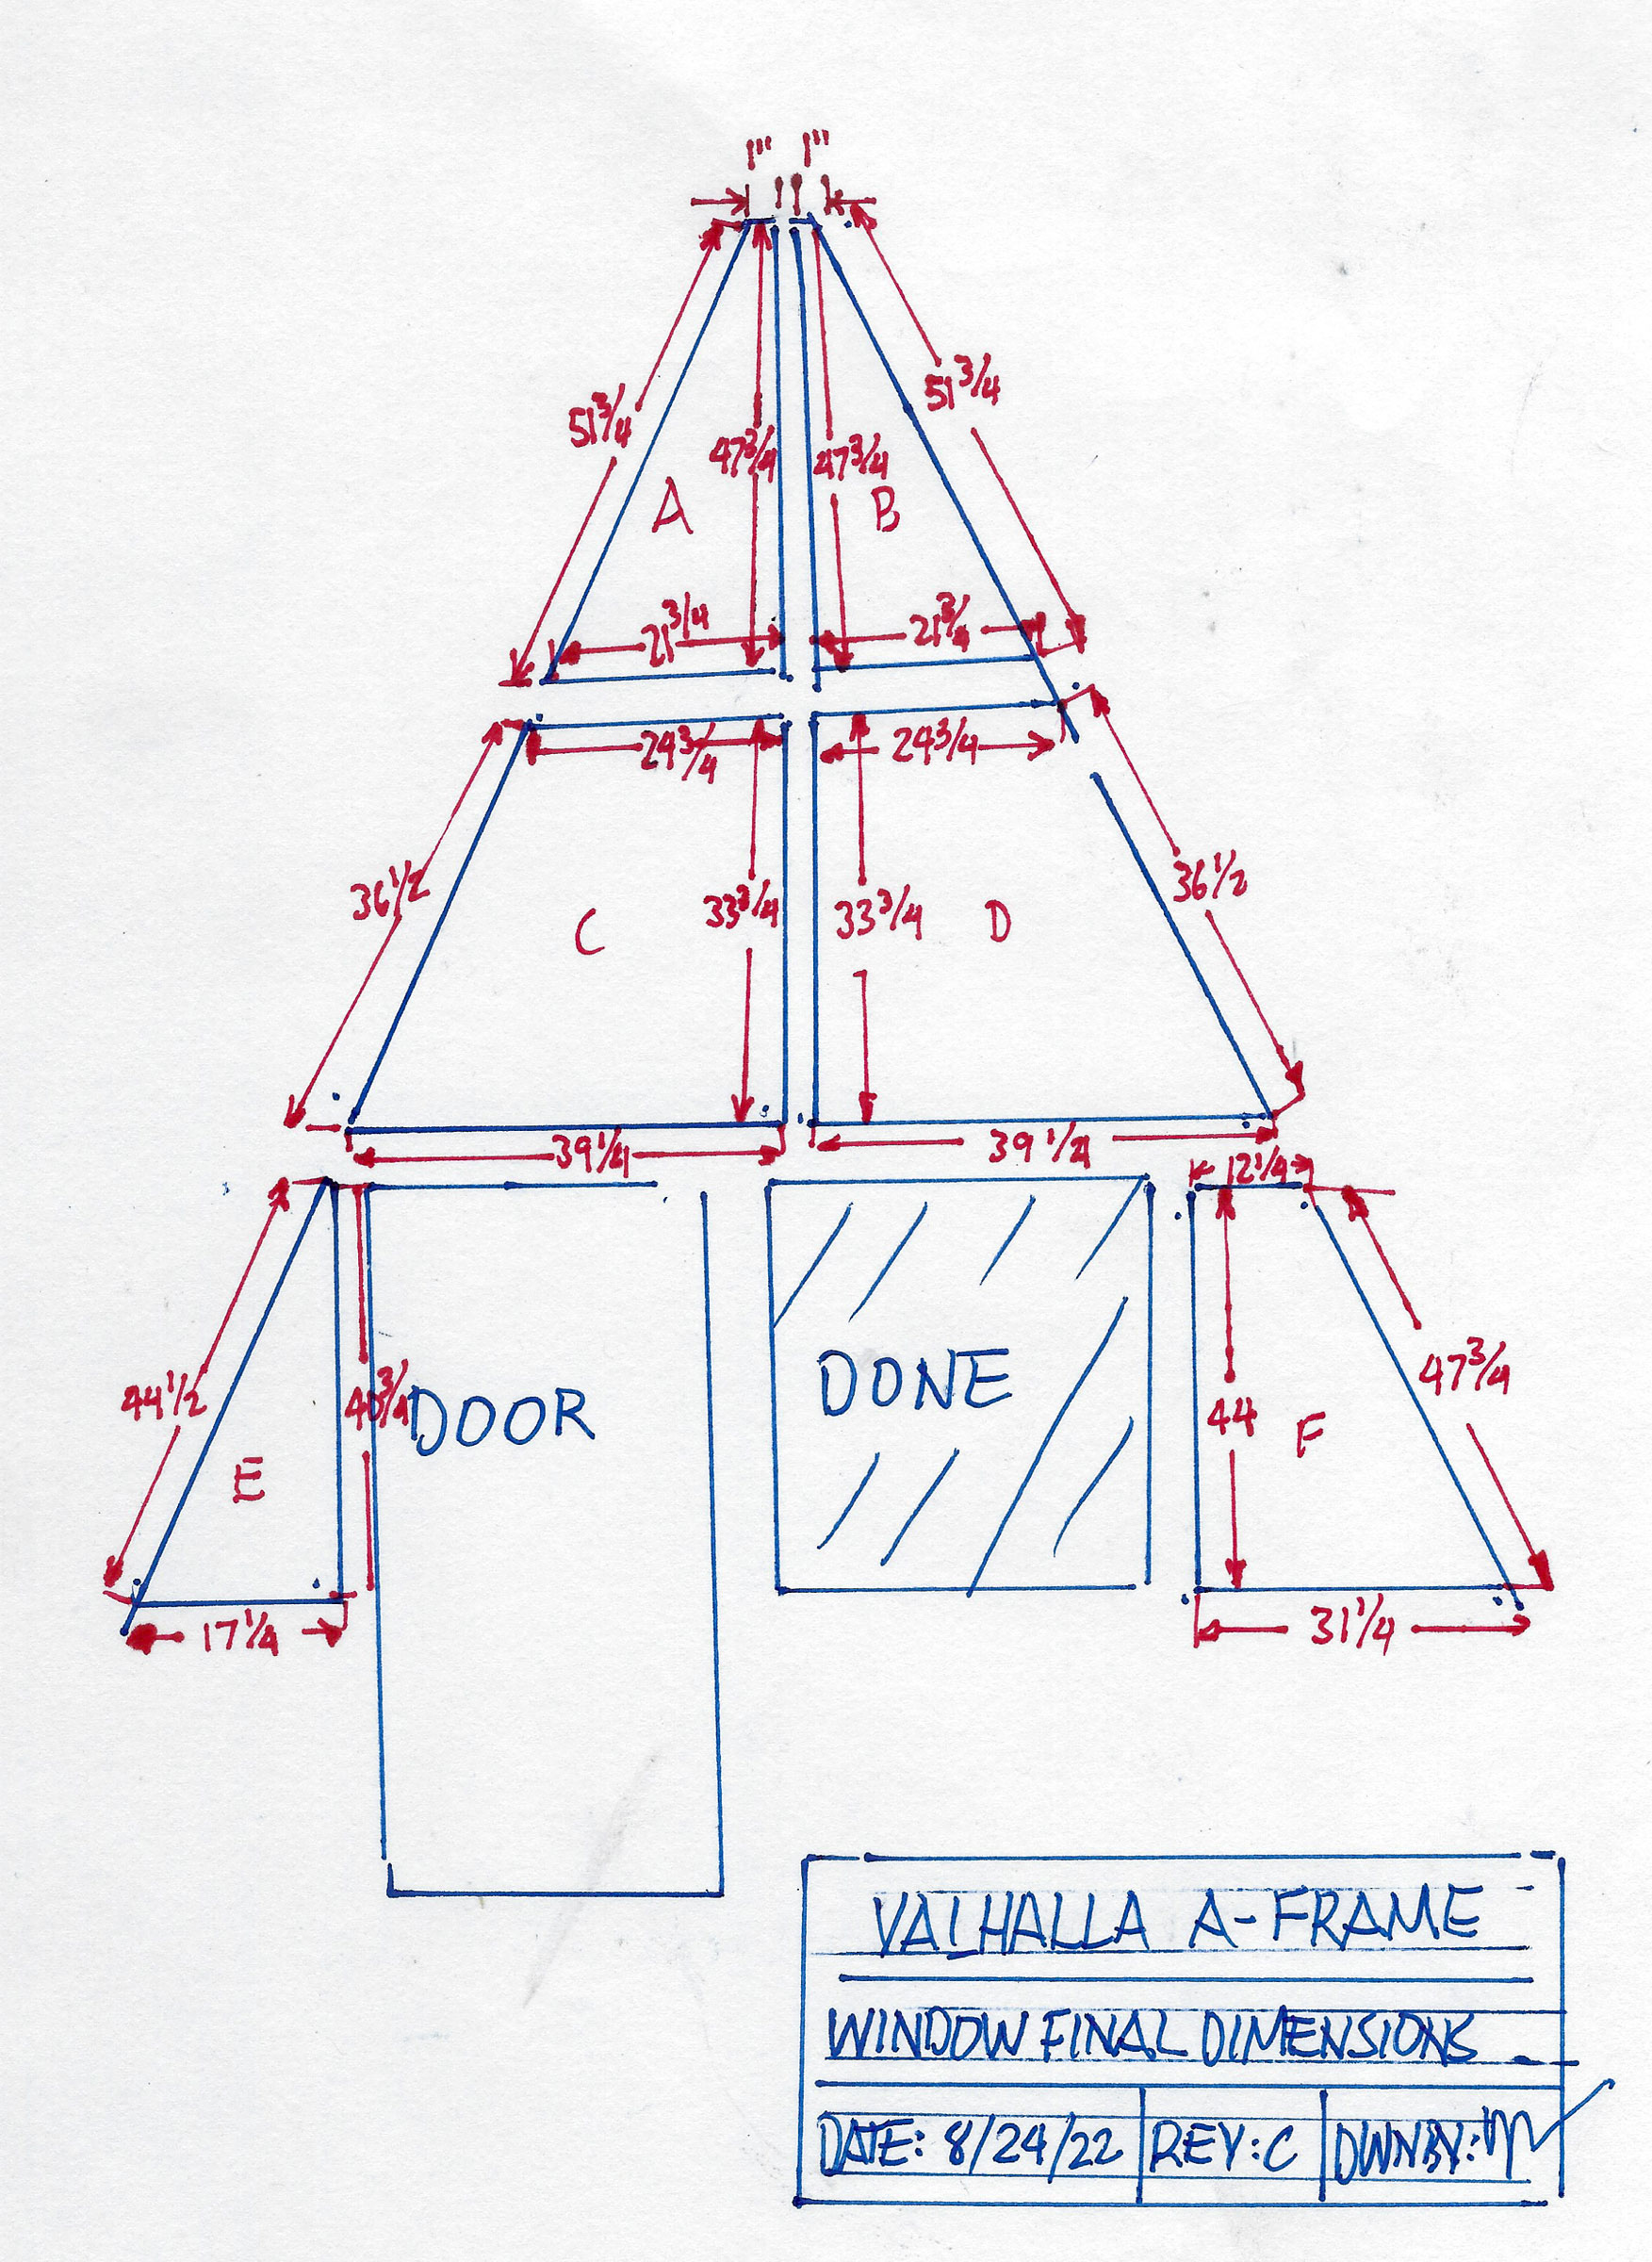 1" 1"
51 3/4
51 3/4
47 3/4
47 3/4
A
B
21 3/4
21 3/4
24 3/4
24 3/4
36 1/2
36 1/2
33 3/4
33 3/4
C
D
39 1/4
39 1/4
12 1/4
44 1/2
40 3/4
DOOR
DONE
44
47 3/4
E
F
17 1/4
31 1/4
VALHALLA A-FRAME
WINDOW FINAL DIMENSIONS
DATE: 8/24/22
REV: C
DWN BY: